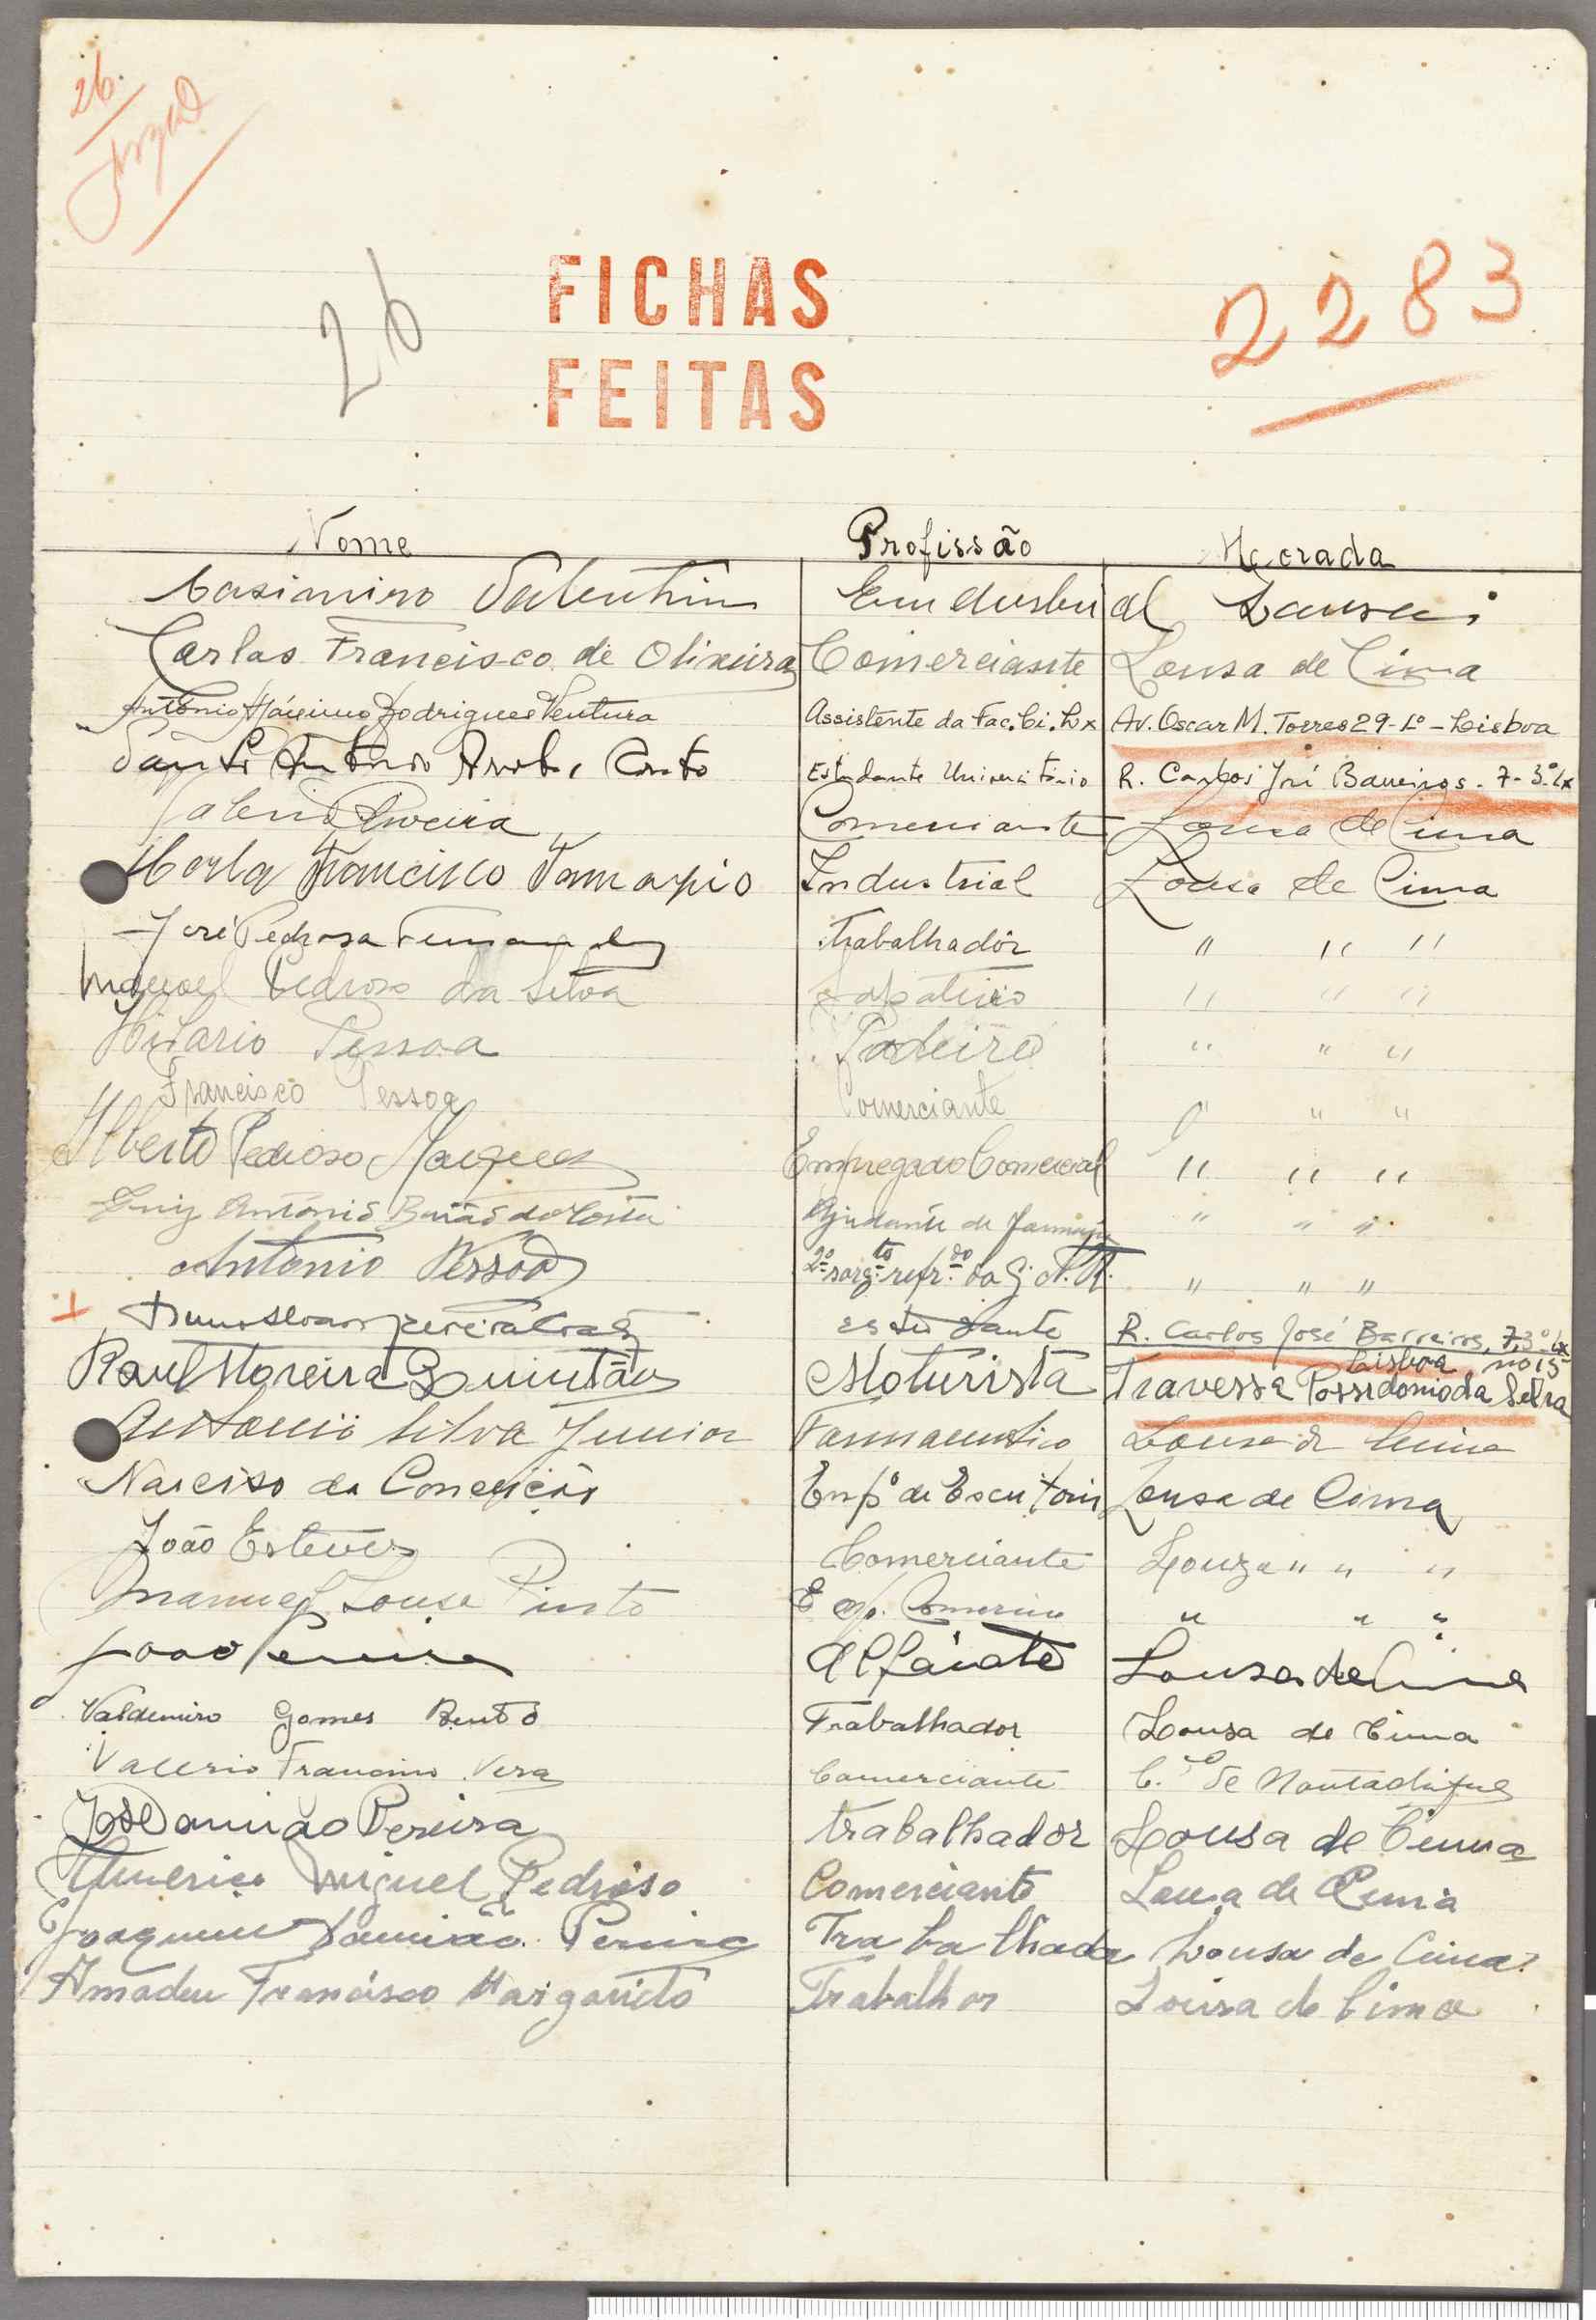 26.
26
FICHAS
FEITAS
2283
Nome Profissão Morada
Casimiro Valentim Emdusturial Lousa
Carlos Francisco de Oliveira Comerciante Lousa de Cima
António Máximo Rodrigues Ventura Assistente da Fac. Ci. Lx Av. Oscar M. Torres 29-1º - Lisboa
António Couto Estudante Universitário R. Carlos José Barreiros - 7 - 3º Lx
Oliveira Comerciante Lousa de Cima
Francisco Industrial Lousa de Cima
José Pedrosa Fernandes trabalhadôr " " "
Manoel Pedroso da Silva Sapateiro " " "
Hilario Pessoa Padeiro " " "
Francisco Pessoa Comerciante " " "
Alberto Pedroso Marques Empregado Comercial " " "
Luiz António Barão da Costa Ajudante de Farmácia " " "
Antonio Pessoa 2º sargto refrdo da G.N.R. " " "
estudante R. Carlos José Barreiros, 7, 3º Lx
Raul Moreira Quintão Moturista Lisboa nº 15
Travessa Possidonio da Silva
Antonio Silva Junior Farmaceutico Lousa de Cima
Narciso da Conceição Empº de Escritorio Lousa de Cima
João Esteves Comerciante Louza " " "
Manuel Sousa Pinto Emp. Comercio " " "
João Pereira Alfaiate Lousa de Cima
Valdemiro Gomes Bento Trabalhador Lousa de Cima
Valerio Francisco Vera Comerciante C. de Montachique
José Damião Pereira trabalhador Lousa de Cima
Americo Miguel Pedroso Comerciante Lousa de Cima
Joaquim Damião Pereira Trabalhado Lousa de Cima
Amadeu Francisco Margarido Trabalhor Lousa de Cima